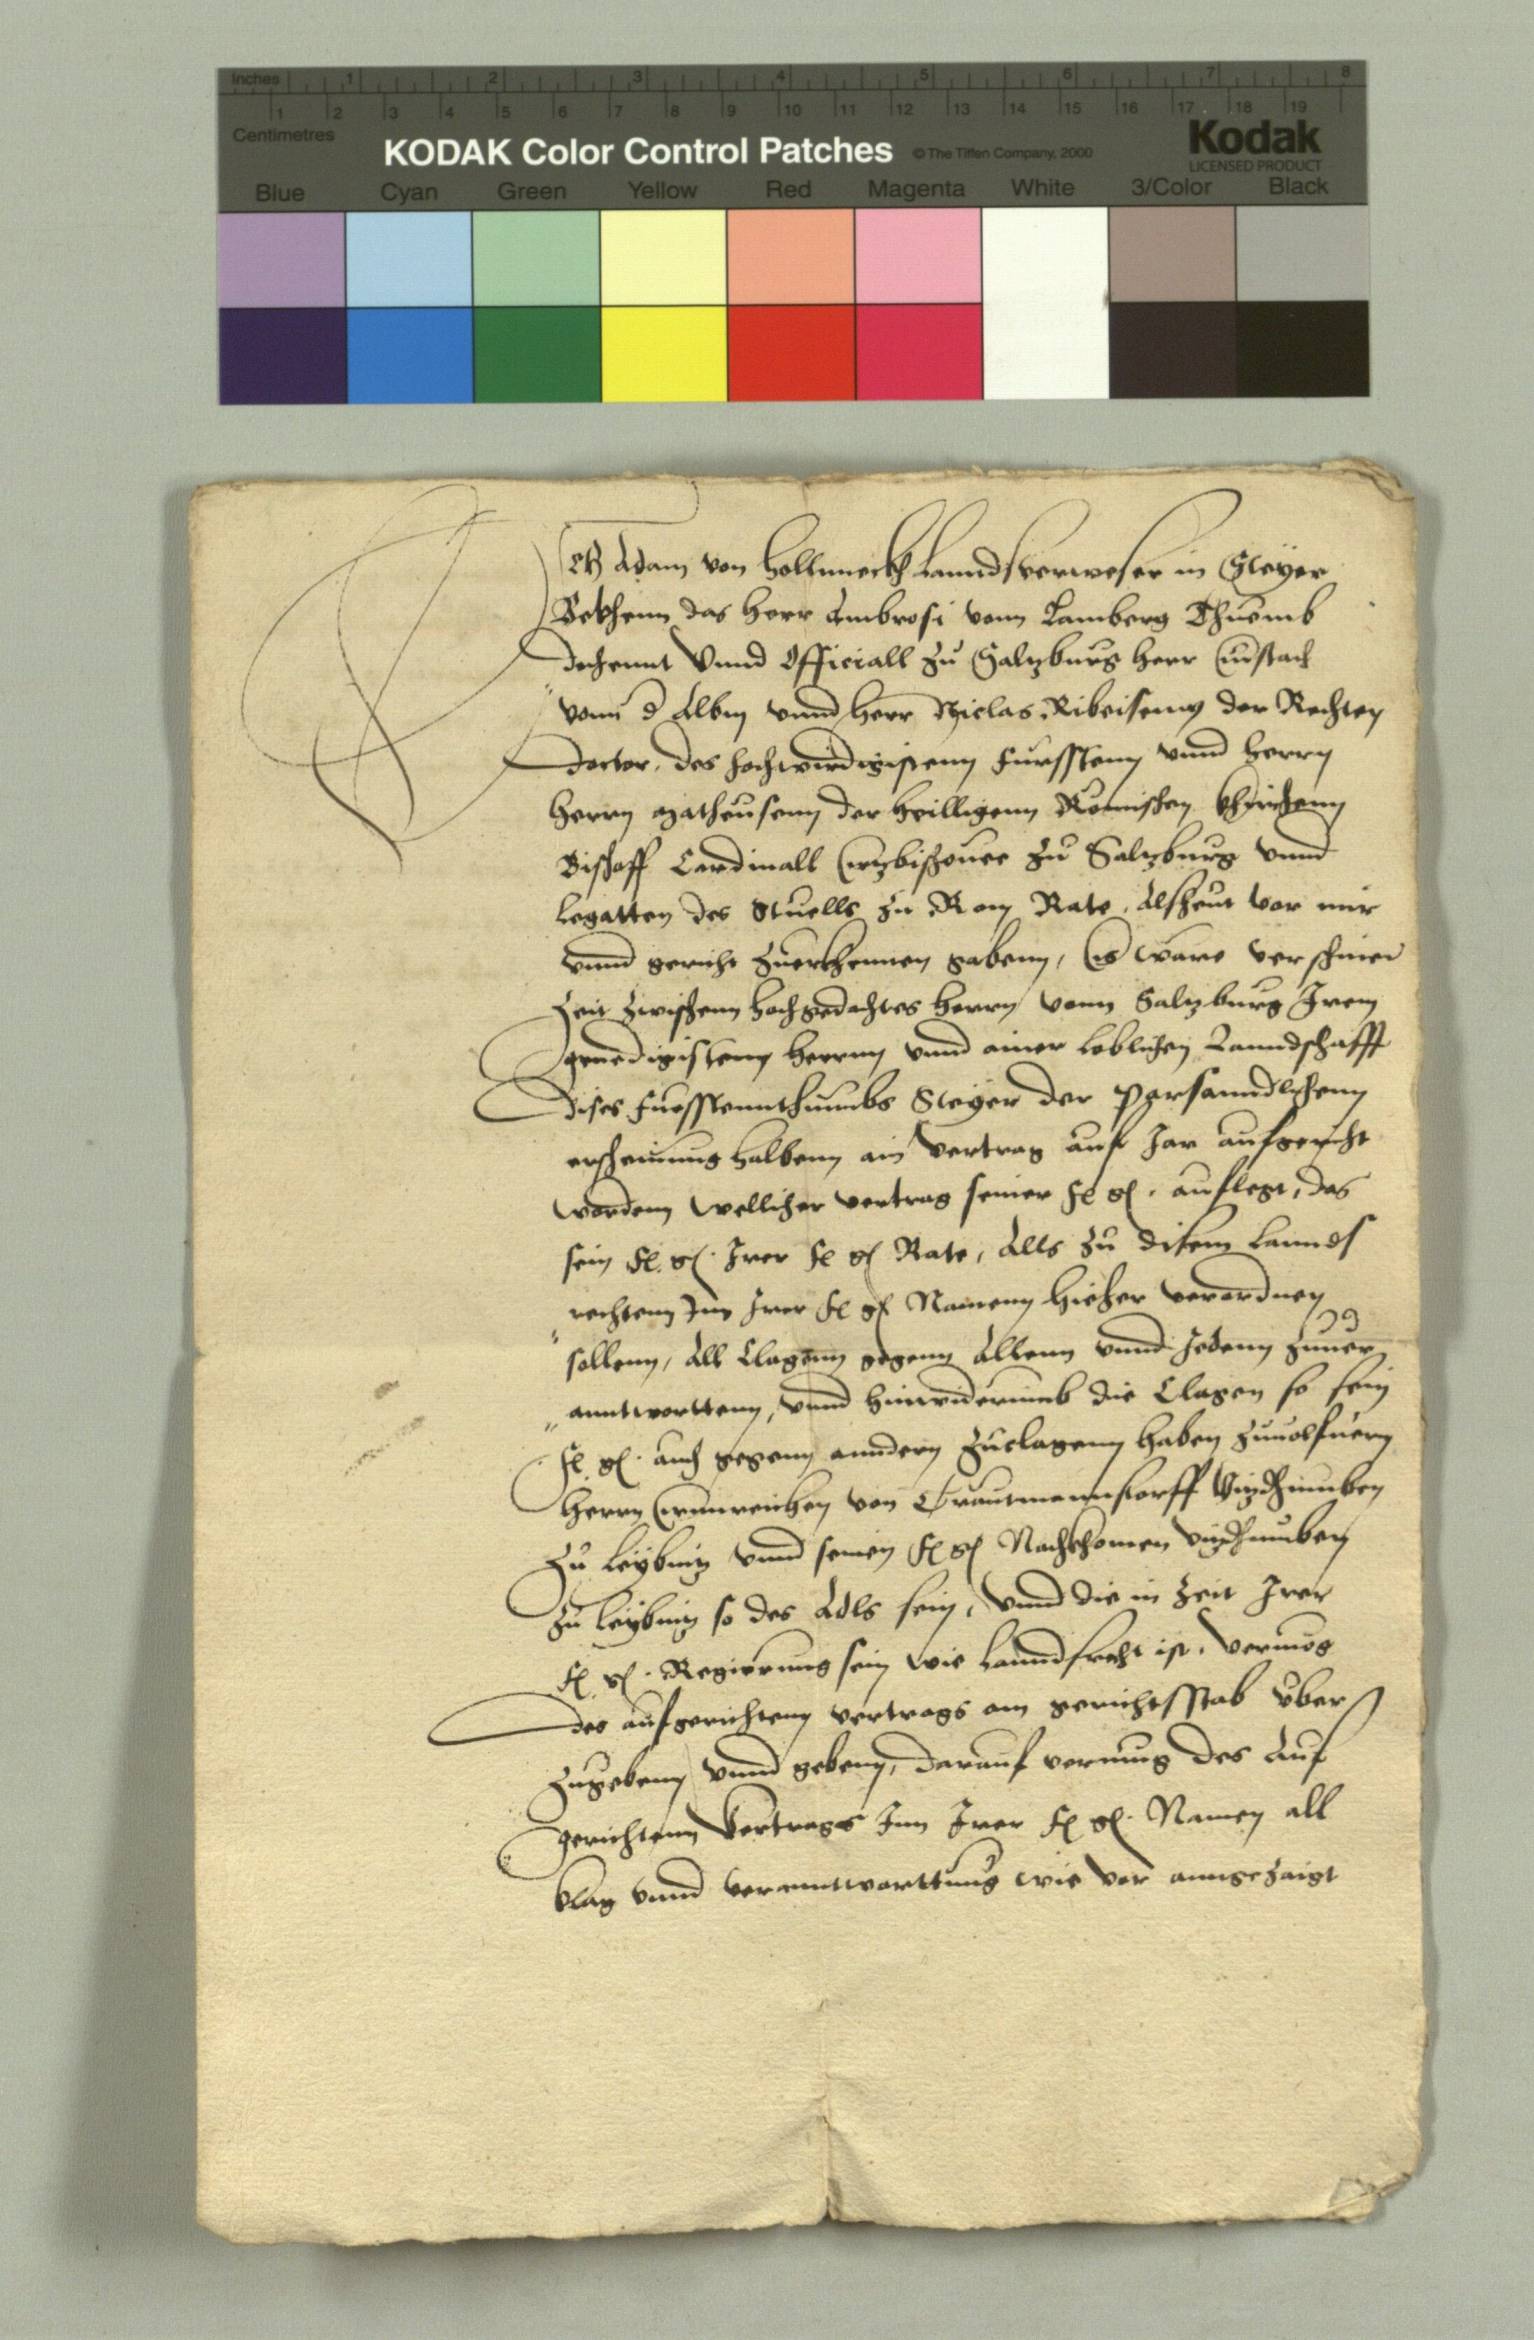 Inches 1 2 3 4 5 6 7 8
1 2 3 4 5 6 7 8 9 10 11 12 13 14 15 16 17 18 19
Centimetres
KODAK Color Control Patches © The Tiffen Company, 2000 Kodak
LICENSED PRODUCT
Blue Cyan Green Yellow Red Magenta White 3/Color Black
Ich Adam von Hollnneckh Lanndsverweser in Steyer
Bekhenn das herr Ambrosi vonn Lamberg Thuemb
dechennt Vnnd Officiall zu Saltzburg herr Eustach
vonn d Albm vnnd herr Niclas Ribeisenn der Rechten
Doctor, des hochwirdigistenn Furssten vnnd herrn
herrn Matheusenn der heilligenn Romischen Khirchenn
Bischoff Cardinall Ertzbischoue zu Saltzburg vnnd
Legatten des Stuells zu Rom Rate, Alsheut vor mir
vnnd gericht zuerkhennen gabenn, Es ware verschiner
Zeit zwischenn hochgedachtes herrn vonn Saltzburg Irem
genedigistenn herrnn vnnd ainer loblichen Lanndschafft
dises Furstennthumbs Steyer der Persanndlichenn
erscheinung halbenn ain Vertrag auf Jar aufgericht
wordenn Wellicher vertrag seiner Fl gl. auflegt, das
sein Fl. gl. Irer Fl gl Rate, Alls zu disem Lannds
rechtenn Inn Irer Fl gl Namenn hieher verordnen
sollenn, All Clagenn gegenn Allenn vnnd Jedenn zuuer
anntwortten, vnnd hinwiderumb die Clagen so sein
Fl. gl. auch gegenn anndern zuclagenn haben zuuolfuern
herrn Ernnreichen von Trautmannstorff Vitzdhumben
zu Leybnitz vnnd seinen Fl gl Nachkhomen Vitzdhumben
zu Leybnitz so des Adls sein, vnnd die in Zeit Irer
Fl. gl. Regierung sein wie Lanndsrecht ist, vermog
des aufgerichtenn vertrags am gerichtsstab vber
zugebenn vnnd gebenn, darauf vermug des Auf
gerichtenn Vertrags Inn Irer Fl gl. Namen all
klag vnnd veranntworttung wie vor anngezaigt